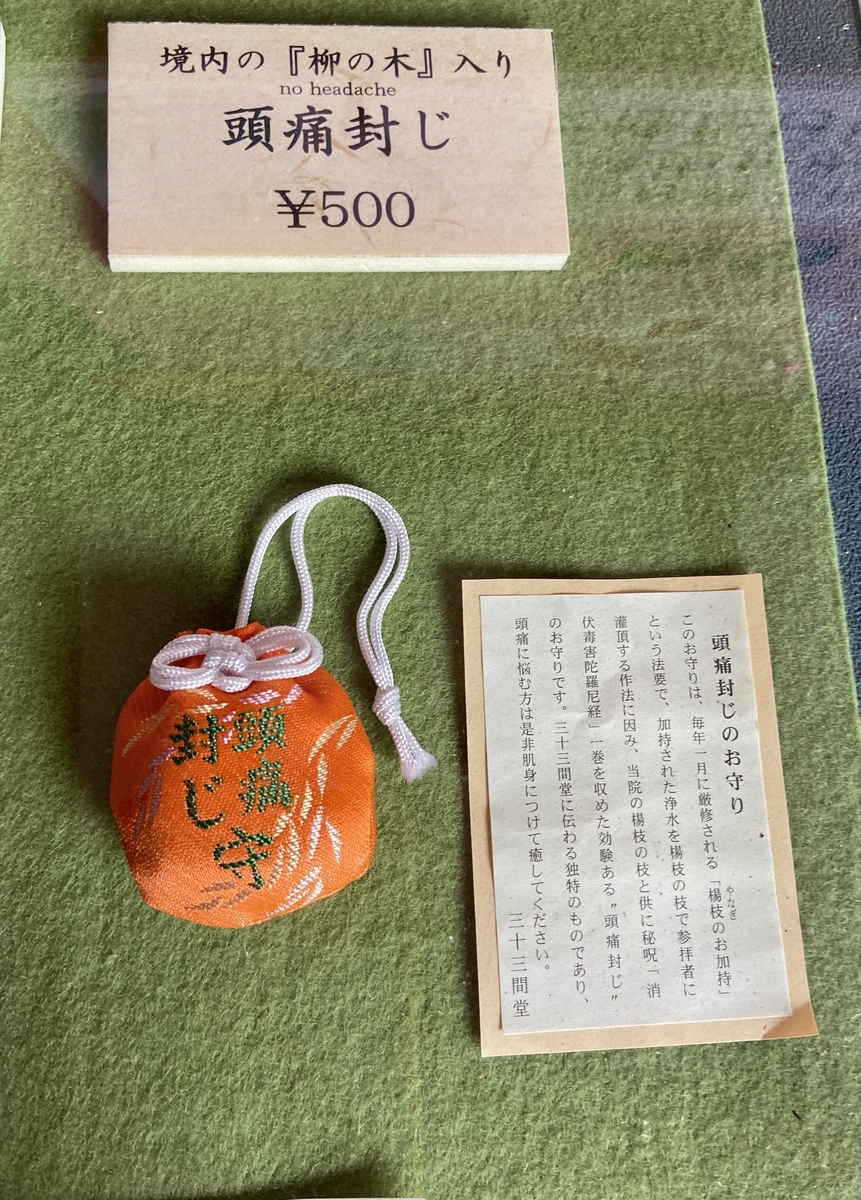 境内の『柳の木』入り
no headache
頭痛封じ
¥500
頭痛守
封じ
頭痛封じのお守り
このお守りは、毎年一月に厳修される「楊枝のお加持」
やなぎ
という法要で、加持された浄水を楊枝の枝で参拝者に
灌頂する作法に因み、当院の楊枝の枝と供に秘呪「消
伏毒害陀羅尼経」一巻を収めた効験ある〝頭痛封じ〟
のお守りです。三十三間堂に伝わる独特のものであり、
頭痛に悩む方は是非肌身につけて癒してください。
三十三間堂